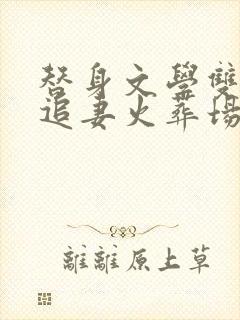 替身文學雙
追妻火葬場
離離原上草